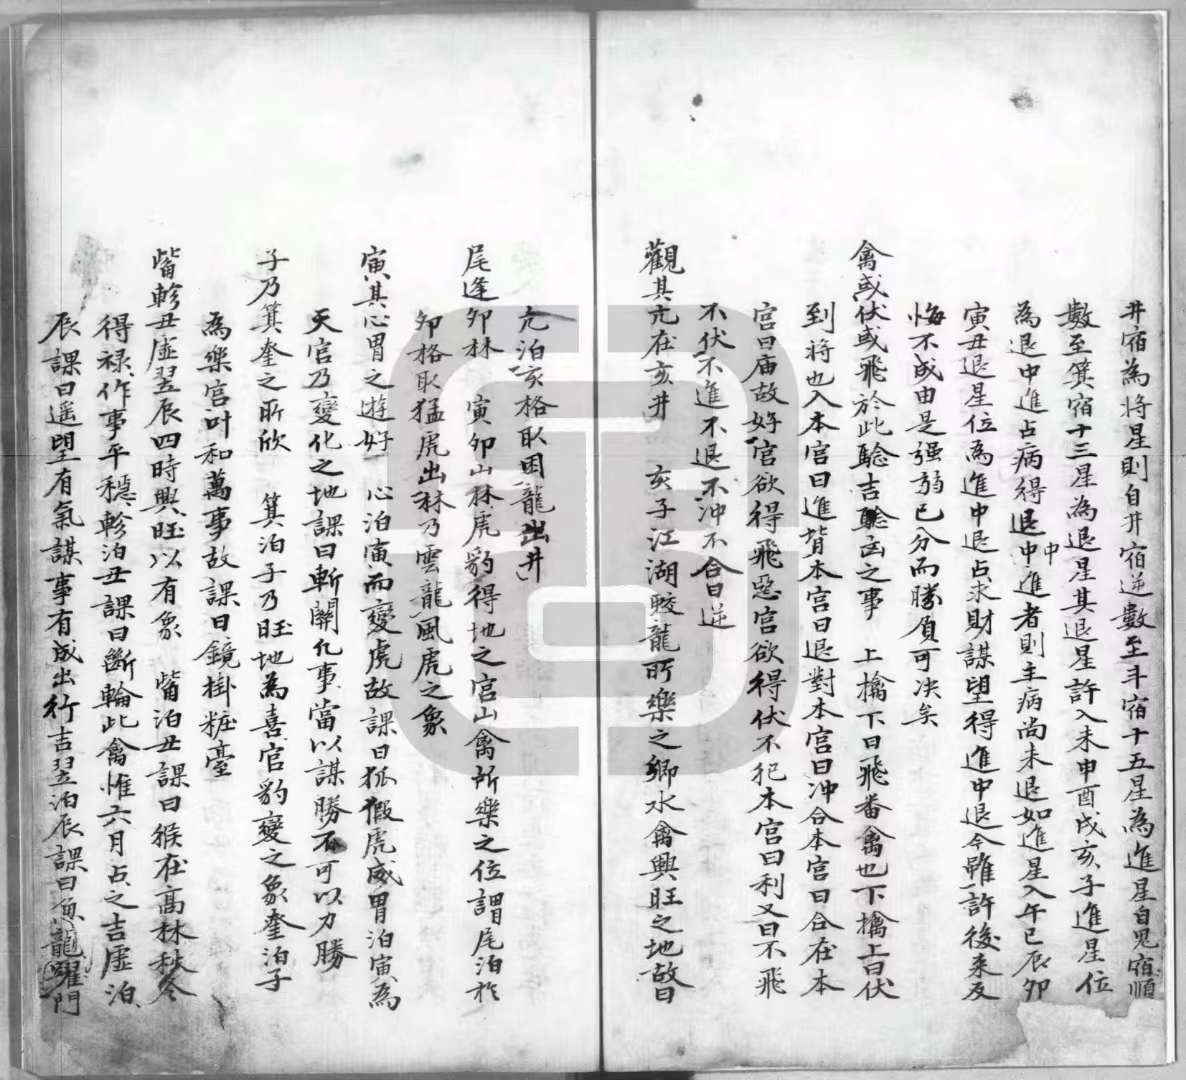 井宿為將星則自井宿逆數至斗宿十五星為進星自鬼宿順
數至箕宿十三星為退星其退星許入未申酉戌亥子進星位
為退中進占病得退中進者則主病尚未退如進星入午巳辰卯
寅丑退星位為進中退占求財謀望得進中退今雖許後來反
悔不成由是強弱已分而勝負可決矣
禽或伏或飛於此驗吉驗凶之事　上擒下曰飛番禽也下擒上曰伏
到將也入本宮曰進背本宮曰退對本宮曰沖合本宮曰合在本
宮曰廟故好宮欲得飛惡宮欲得伏不犯本宮曰利又曰不飛
不伏不進不退不沖不合曰逆
觀其亢在亥井　亥子江湖蛟龍所樂之鄉水禽興旺之地故曰
亢泊亥格取困龍出井
尾逢卯林　寅卯山林虎豹得地之宮山禽所樂之位謂尾泊於
卯格取猛虎出林乃雲龍風虎之象
寅其心胃之遊好　心泊寅而變虎故課曰狐假虎威胃泊寅為
天官乃變化之地課曰斬關化事當以謀勝不可以力勝
子乃箕奎之所欣　箕泊子乃旺地為喜官豹變之象奎泊子
為樂宮叶和萬事故課曰鏡掛粧臺
觜軫丑虛翌辰四時興旺以有象　觜泊丑課曰猴在高林秋冬
得祿作事平穩軫泊丑課曰斷輪此禽惟六月占之吉虛泊
辰課曰遥望有氣謀事有成出行吉翌泊辰課曰魚龍躍門